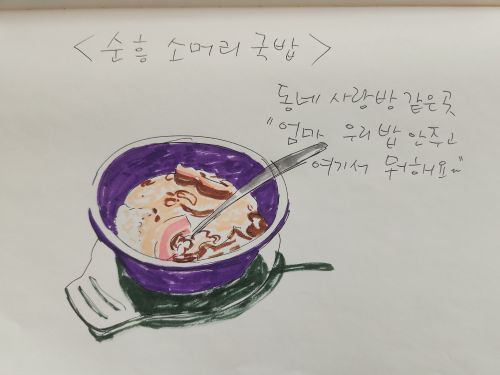 <순흥 소머리 국밥>
동네 사랑방 같은곳
"엄마 우리 밥 안주고
여기서 뭐해요"